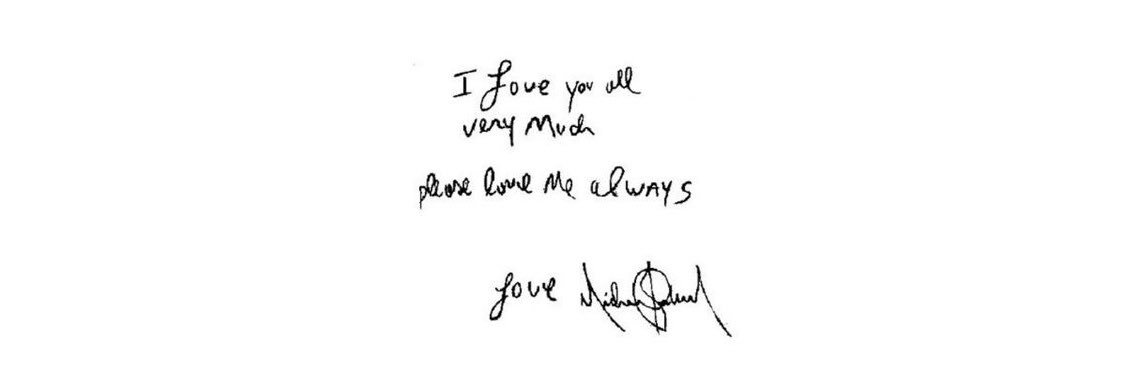 I Love you all
very Much
please love Me alWAYS
Love Michael Jackson